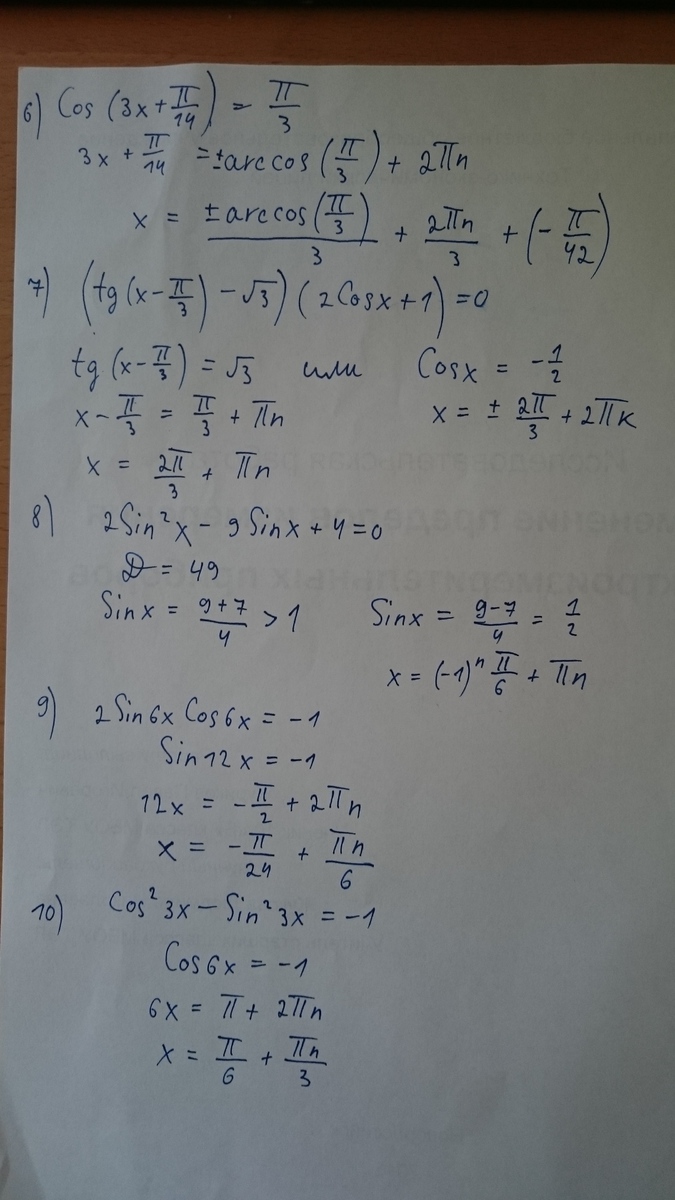 6) Cos (3x + π/14) = π/3
3x + π/14 = ± arccos (π/3) + 2πn
x = ± arccos(π/3)/3 + 2πn/3 + (- π/42)
7) (tg (x - π/3) - √3) (2Cosx + 1) = 0
tg (x - π/3) = √3 или Cosx = - 1/2
x - π/3 = π/3 + πn x = ± 2π/3 + 2πk
x = 2π/3 + πn
8) 2Sin²x - 9Sinx + 4 = 0
D = 49
Sinx = (9+7)/4 > 1 Sinx = (9-7)/4 = 1/2
x = (-1)ⁿ π/6 + πn
9) 2Sin6x Cos6x = -1
Sin12x = -1
12x = - π/2 + 2πn
x = - π/24 + πn/6
10) Cos²3x - Sin²3x = -1
Cos6x = -1
6x = π + 2πn
x = π/6 + πn/3